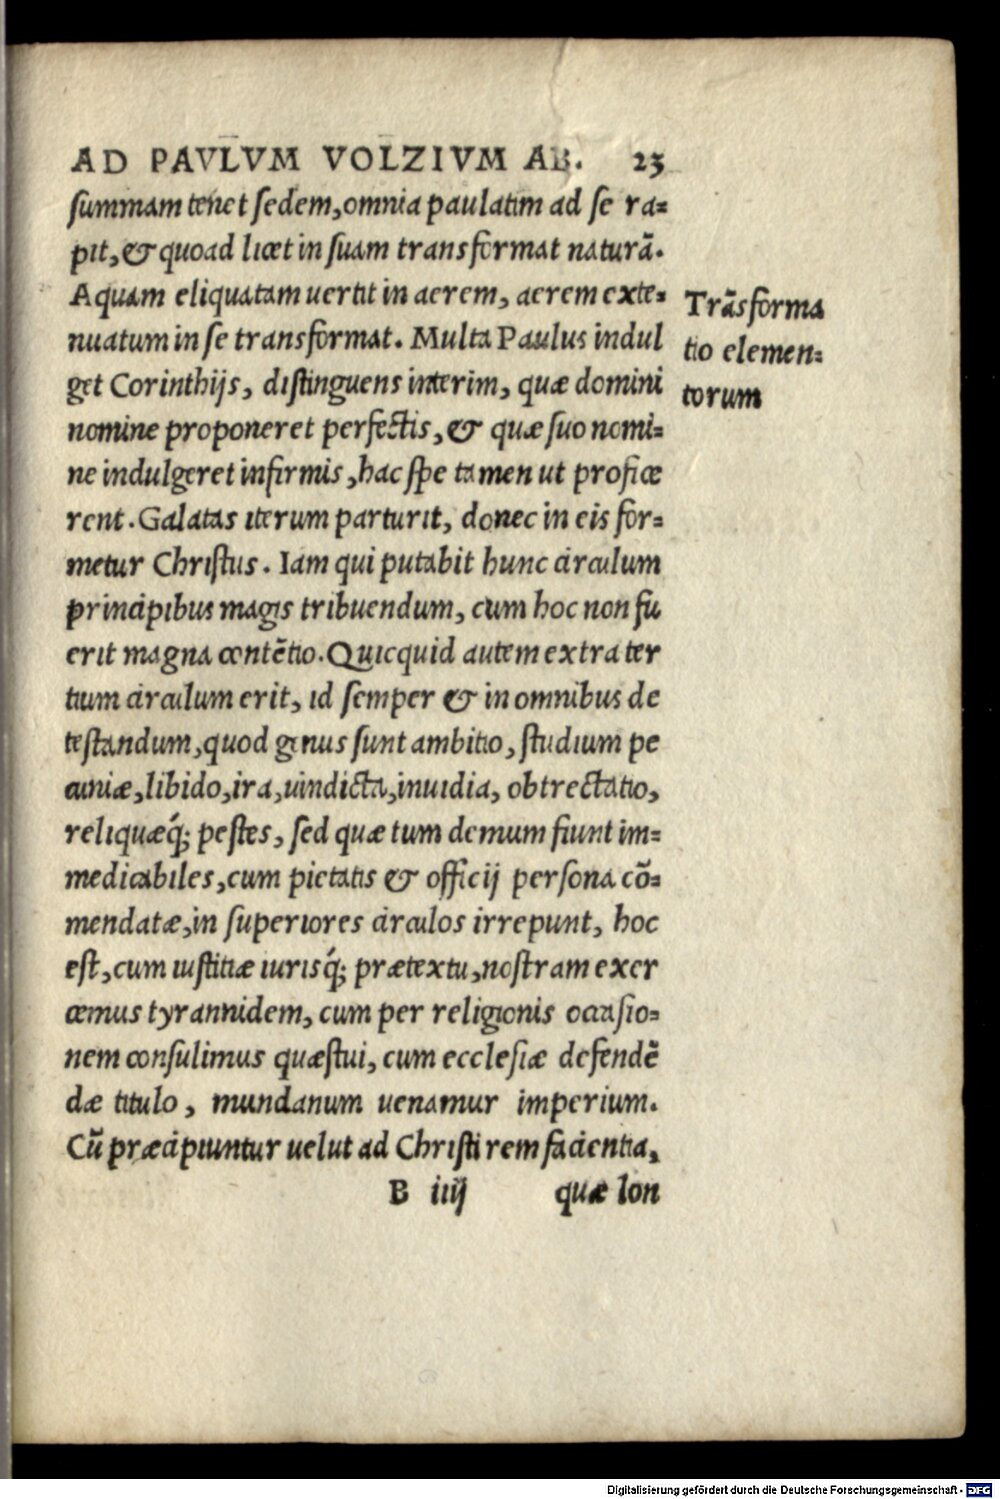 AD PAVLVM VOLZIVM AB. 25
summam tenet sedem, omnia paulatim ad se ra-
pit, & quoad licet in suam transformat naturā.
Aquam eliquatam uertit in aerem, aerem exte-
nuatum in se transformat. Multa Paulus indul
get Corinthijs, distinguens interim, quæ domini
nomine proponeret perfectis, & quæ suo nomi-
ne indulgeret infirmis, hac spe tamen ut profice
rent. Galatas iterum parturit, donec in eis for-
metur Christus. Iam qui putabit hunc circulum
principibus magis tribuendum, cum hoc non fu
erit magna contētio. Quicquid autem extra ter
tium circulum erit, id semper & in omnibus de
testandum, quod genus sunt ambitio, studium pe
cuniæ, libido, ira, uindicta, inuidia, obtrectatio,
reliquæq́; pestes, sed quæ tum demum fiunt im-
medicabiles, cum pietatis & officij persona cō-
mendatæ, in superiores circulos irrepunt, hoc
est, cum iustitiæ iurisq́; prætextu, nostram exer
cemus tyrannidem, cum per religionis occasio-
nem consulimus quæstui, cum ecclesiæ defendē
dæ titulo, mundanum uenamur imperium.
Cū præcipiuntur uelut ad Christi rem facientia,
B iiij quæ lon
Trāsforma
tio elemen-
torum
Digitalisierung gefördert durch die Deutsche Forschungsgemeinschaft - DFG